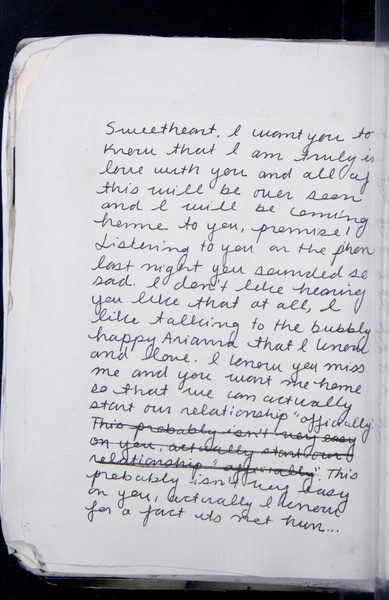 Sweetheart, I want you to
know that I am truly in
love with you and all of
this will be over soon
and I will be coming
home to you, promise!
Listening to you on the phon
last night you sounded so
sad. I don't like hearing
you like that at all, I
like talking to the bubbly
happy Arianna that I know
and love. I know you miss
me and you want me home
so that we can actually
start our relationship "officially
This probably isn't very easy
on you, actually start our
relationship "officially". This
probably isn't very easy
on you, actually I know
for a fact its not hun...